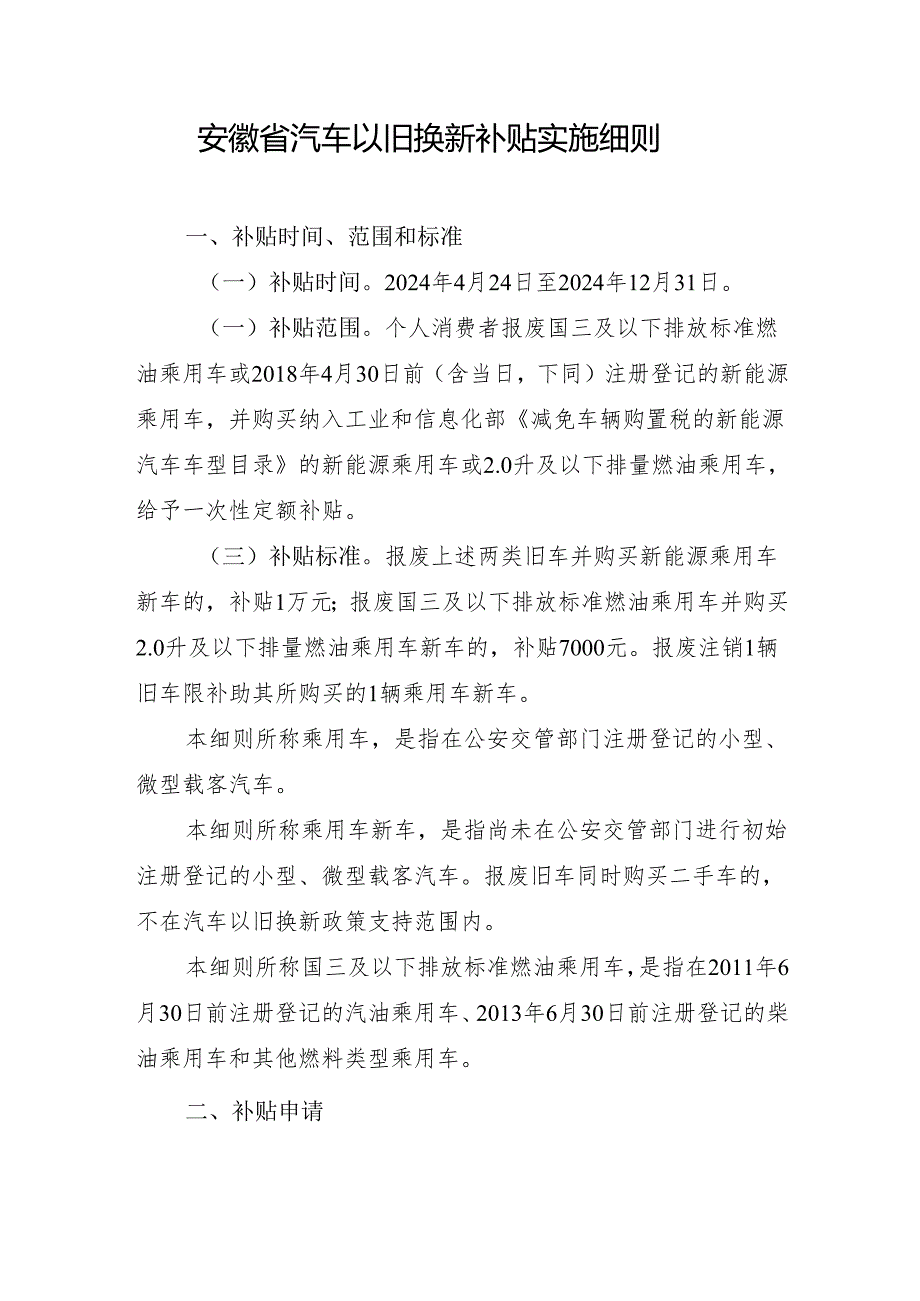 安徽省汽车以旧换新补贴实施细则
一、补贴时间、范围和标准
（一）补贴时间。2024年4月24日至2024年12月31日。
（一）补贴范围。个人消费者报废国三及以下排放标准燃
油乘用车或2018年4月30日前（含当日，下同）注册登记的新能源
乘用车，并购买纳入工业和信息化部《减免车辆购置税的新能源
汽车车型目录》的新能源乘用车或2.0升及以下排量燃油乘用车，
给予一次性定额补贴。
（三）补贴标准。报废上述两类旧车并购买新能源乘用车
新车的，补贴1万元；报废国三及以下排放标准燃油乘用车并购买
2.0升及以下排量燃油乘用车新车的，补贴7000元。报废注销1辆
旧车限补助其所购买的1辆乘用车新车。
本细则所称乘用车，是指在公安交管部门注册登记的小型、
微型载客汽车。
本细则所称乘用车新车，是指尚未在公安交管部门进行初始
注册登记的小型、微型载客汽车。报废旧车同时购买二手车的，
不在汽车以旧换新政策支持范围内。
本细则所称国三及以下排放标准燃油乘用车，是指在2011年6
月30日前注册登记的汽油乘用车、2013年6月30日前注册登记的柴
油乘用车和其他燃料类型乘用车。
二、补贴申请